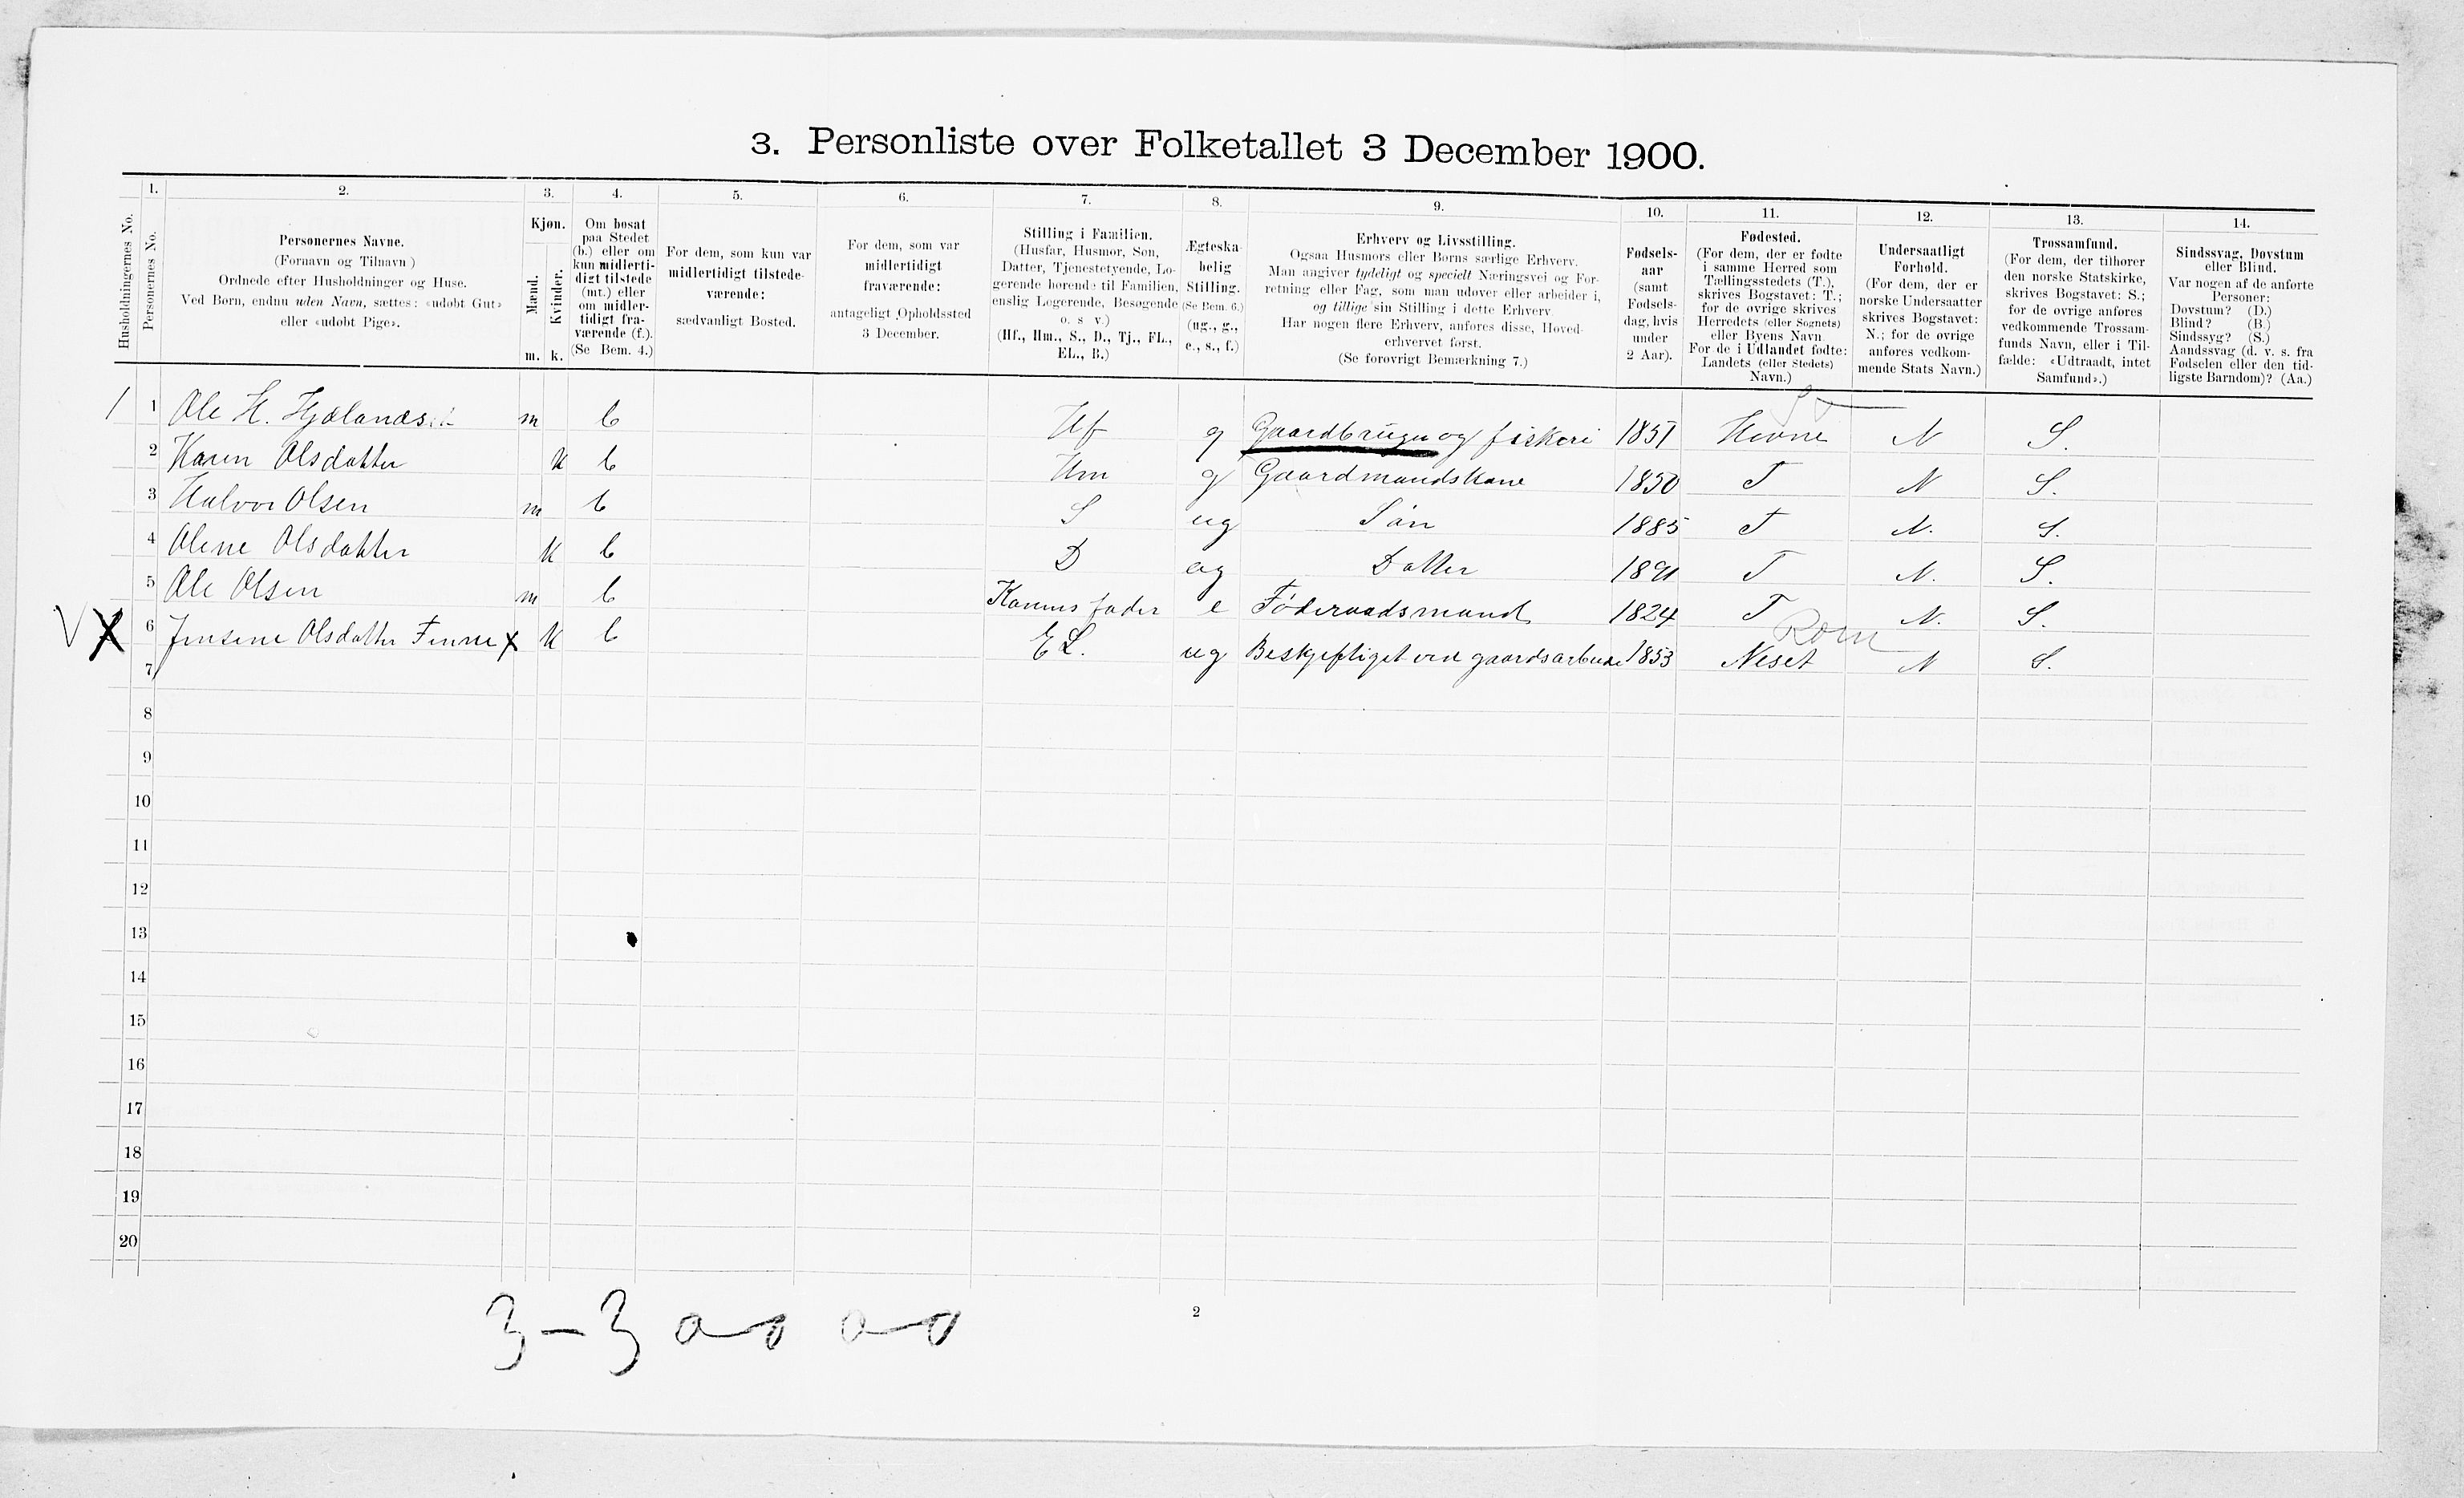 3. Personliste over Folketallet 3 December 1900.
Husholdningernes No.
1.
Personernes No.
2.
Personernes Navne.
(Fornavn og Tilnavn)
Ordnede efter Husholdninger og Huse.
Ved Børn, endnu uden Navn, sættes: «udøbt Gut»
eller «udøbt Pige».
3.
Kjøn.
Mænd.
Kvinder.
m. k.
4.
Om bosat
paa Stedet
(b.) eller om
kun midlerti-
digt tilstede
(mt.) eller
om midler-
tidigt fra-
værende (f.).
(Se Bem. 4.)
5.
For dem, som kun var
midlertidigt tilstede-
værende:
sædvanligt Bosted.
6.
For dem, som var
midlertidigt
fraværende:
antageligt Opholdssted
3 December.
7.
Stilling i Familien.
(Husfar, Husmor, Søn,
Datter, Tjenestetyende, Lo-
gerende hørende til Familien,
enslig Logerende, Besøgende
o. s v.)
(Hf., Hm., S., D., Tj., FL.,
EL., B.)
8.
Ægteska-
belig
Stilling.
(Se Bem. 6.)
(ug., g.,
e., s., f.)
9.
Erhverv og Livsstilling.
Ogsaa Husmors eller Børns særlige Erhverv.
Man angiver tydeligt og specielt Næringsvei og For-
retning eller Fag, som man udøver eller arbeider i,
og tillige sin Stilling i dette Erhverv.
Har nogen flere Erhverv, anføres disse, Hoved-
erhvervet først.
(Se forøvrigt Bemærkning 7.)
10.
Fødsels-
aar
(samt
Fødsels-
dag, hvis
under
2 Aar).
11.
Fødested.
(For dem, der er fødte
i samme Herred som
Tællingsstedets (T.),
skrives Bogstavet: T.;
for de øvrige skrives
Herredets (eller Sognets)
eller Byens Navn.
For de i Udlandet fødte:
Landets (eller Stedets)
Navn.)
12.
Undersaatligt
Forhold.
(For dem, der er
norske Undersaatter
skrives Bogstavet:
N.; for de øvrige
anføres vedkom-
mende Stats Navn.)
13.
Trossamfund.
(For dem, der tilhører
den norske Statskirke,
skrives Bogstavet: S.;
for de øvrige anføres
vedkommende Trossam-
funds Navn, eller i Til-
fælde: «Udtraadt, intet
Samfund».)
14.
Sindssvag, Døvstum
eller Blind.
Var nogen af de anførte
Personer:
Døvstum? (D.)
Blind? (B.)
Sindssyg? (S.)
Aandssvag (d. v. s. fra
Fødselen eller den tid-
ligste Barndom)? (Aa.)
1 1 Ole H. m b Hf g Gaardbruger og fiskeri 1851 Hevne N S.
2 Karen Olsdatter K b Hm g Gaardmandskone 1850 T N S.
3 Halvor Olsen m b S ug Søn 1885 T N. S.
4 Olene Olsdatter K b D ug Datter 1891 T N. S.
5 Ole Olsen m b Karens fader e Føderaadsmand 1824 T N. S.
Rom
V X 6 Jensine Olsdatter X K b EL. ug Beskjeftiget ved gaardsarbeide 1853 Neset N S.
7
8
9
10
11
12
13
14
15
16
17
18
19
20
3-3 0-0 0-0
2